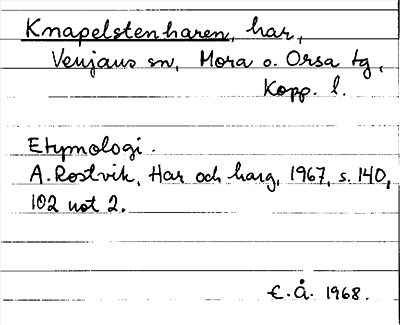 Knapelstenharen, har,
Venjans sn, Mora o. Orsa tg,
Kopp. l.
Etymologi.
A. Rostvik, Har och harg, 1967, s. 140,
102 not 2.
E.Å. 1968.